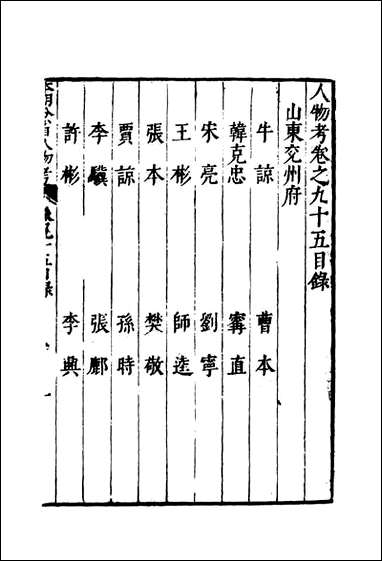 人物考卷之九十五目錄
山東兗州府
牛諒 曹本
韓克忠 甯直
宋亮 劉寧
王彬 師逵
張本 樊敬
賈諒 孫時
李驥 張鄜
許彬 李典
人物考